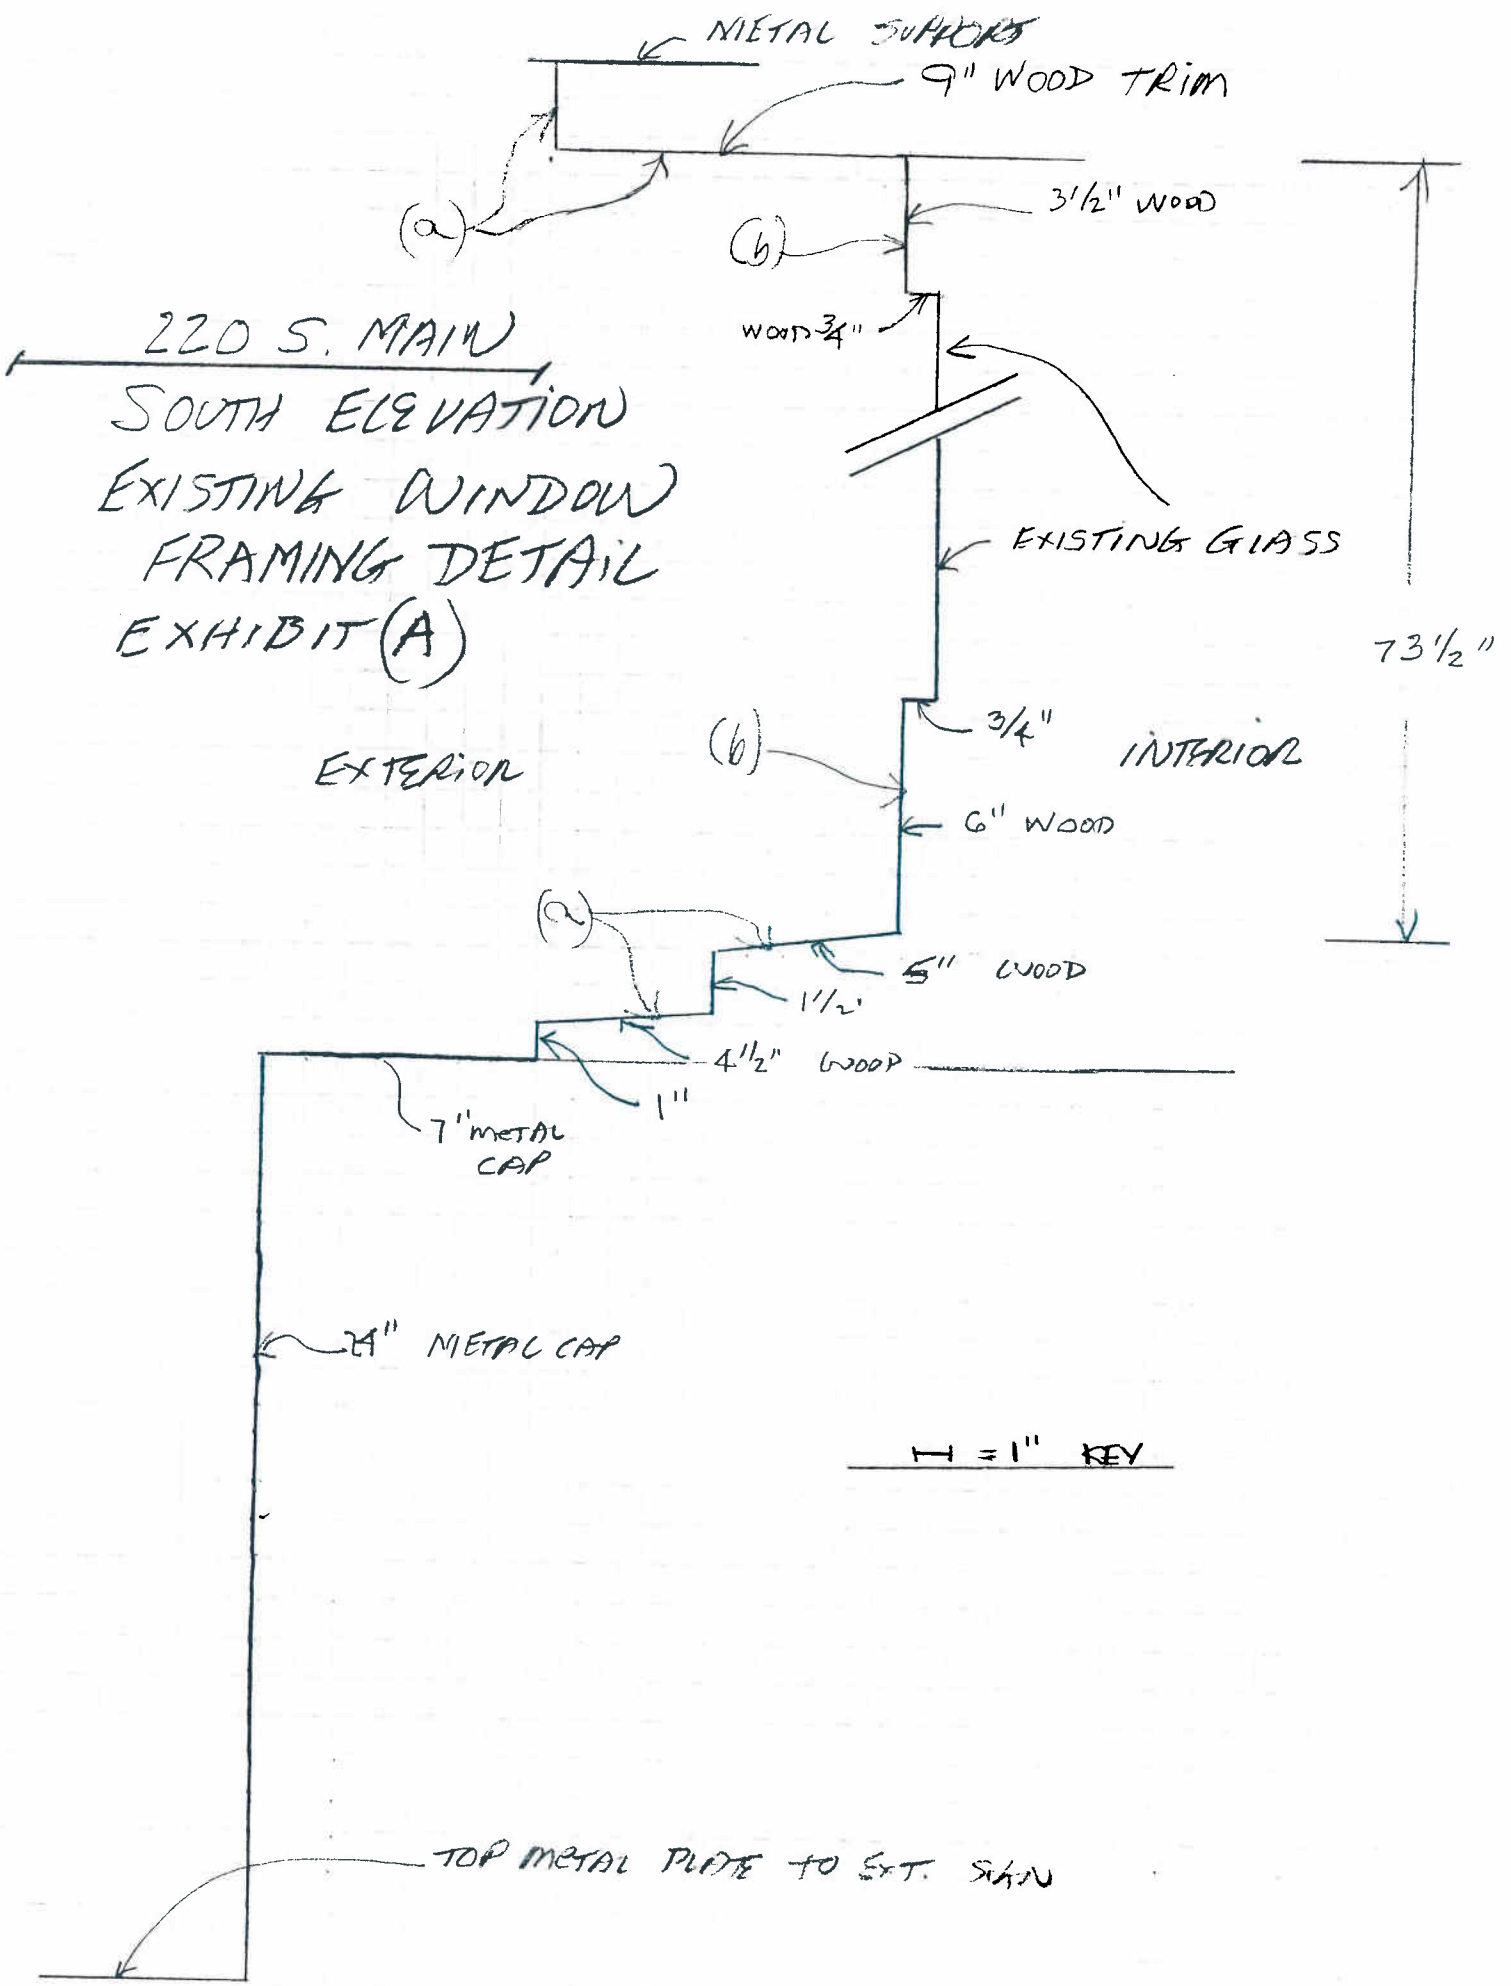 METAL SUPPORT
9" WOOD TRIM
(a)
3 1/2" WOOD
(b)
WOOD 3/4"
220 S. MAIN
SOUTH ELEVATION
EXISTING WINDOW
FRAMING DETAIL
EXHIBIT (A)
EXISTING GLASS
73 1/2"
3/4"
(b)
EXTERIOR
INTERIOR
6" WOOD
(a)
5" WOOD
1 1/2"
4 1/2" WOOD
1"
7" METAL
CAP
24" METAL CAP
= 1" KEY
TOP METAL PLATE TO EXT. SIGN